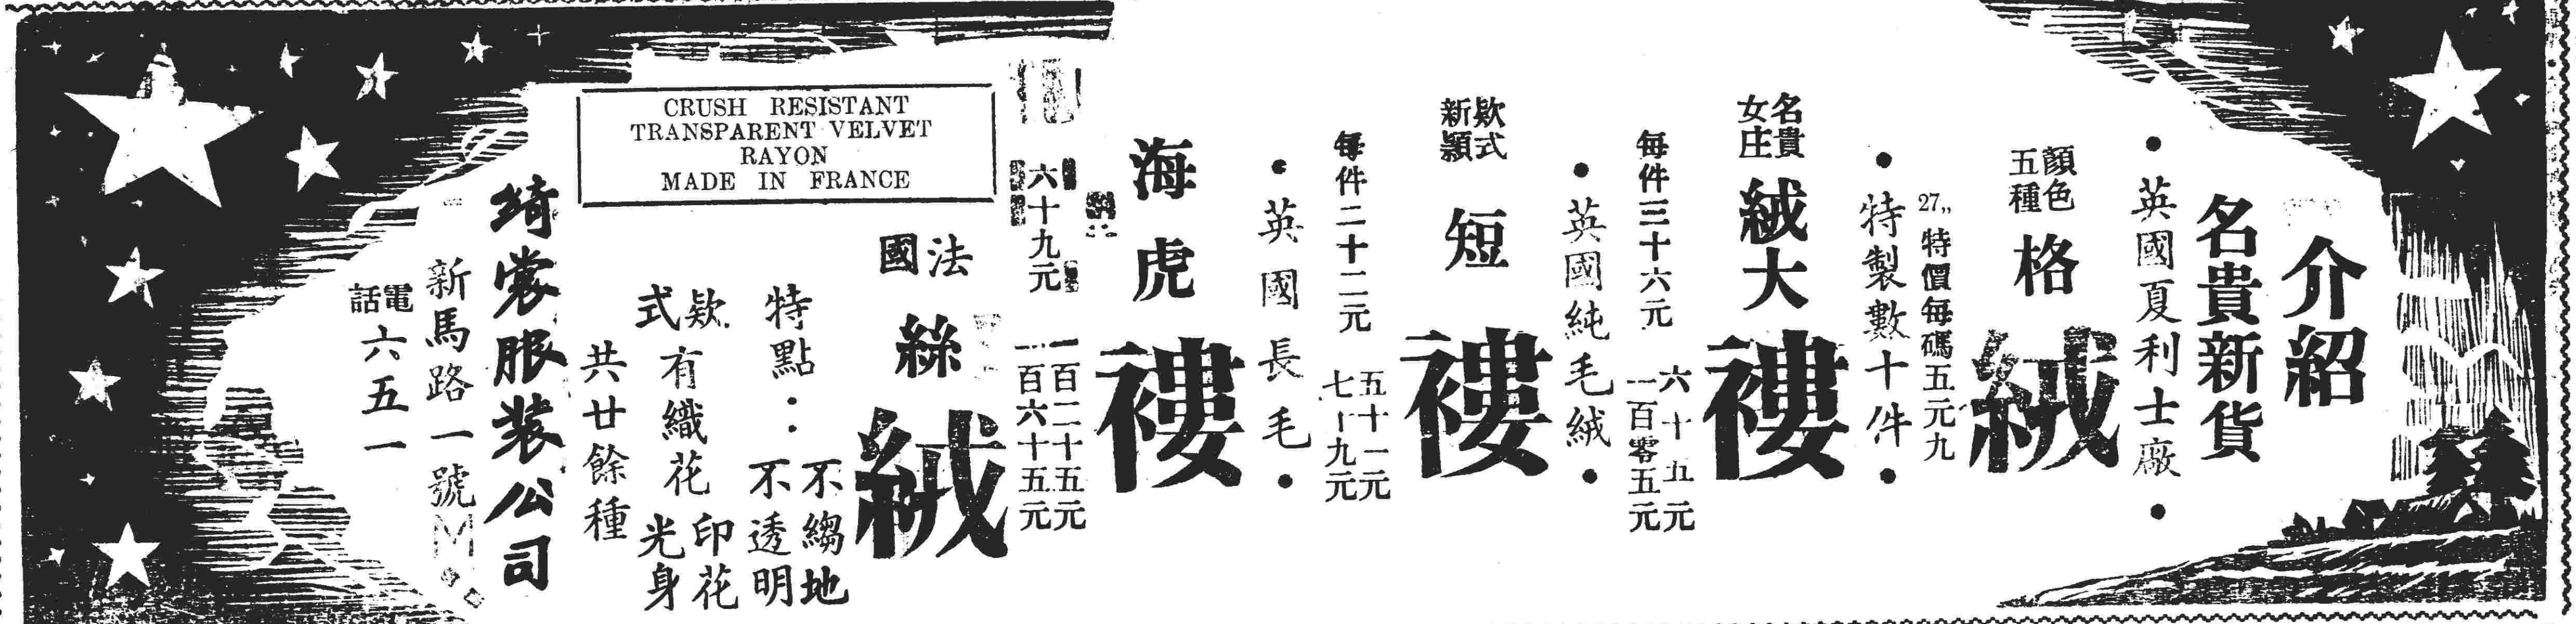 介紹
名貴新貨
•英國夏利士廠•
顏色
五種
格絨
27,,特價每碼五元九
•特製數十件•
名貴
女庄
絨大褸
每件三十六元
六十五元
一百零五元
•英國純毛絨•
欵式
新穎
短褸
每件二十二元
五十一元
七十九元
•英國長毛•
海虎褸
六十九元
一百二十五元
一百六十五元
CRUSH RESISTANT
TRANSPARENT VELVET
RAYON
MADE IN FRANCE
法國
絲絨
特點：
不縐地
不透明
欵式
有織花
印花
光身
共廿餘種
綺裳服装公司
新馬路一號
電話
六五一